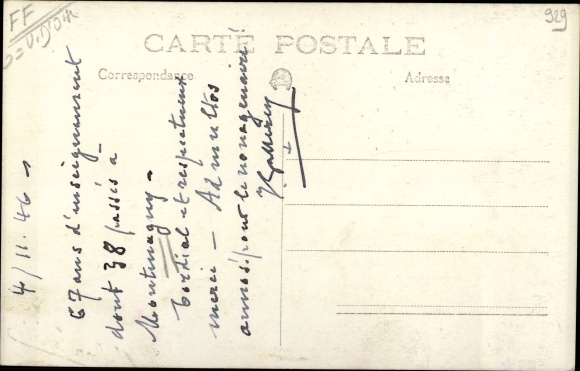 FF
929
CARTE POSTALE
Correspondance
Adresse
4/11.46
67 ans d'enseignement
dont 38 passés à
Montmagny -
Cordial et respectueux
merci - Ad multos
annos! pour le nonagénaire!